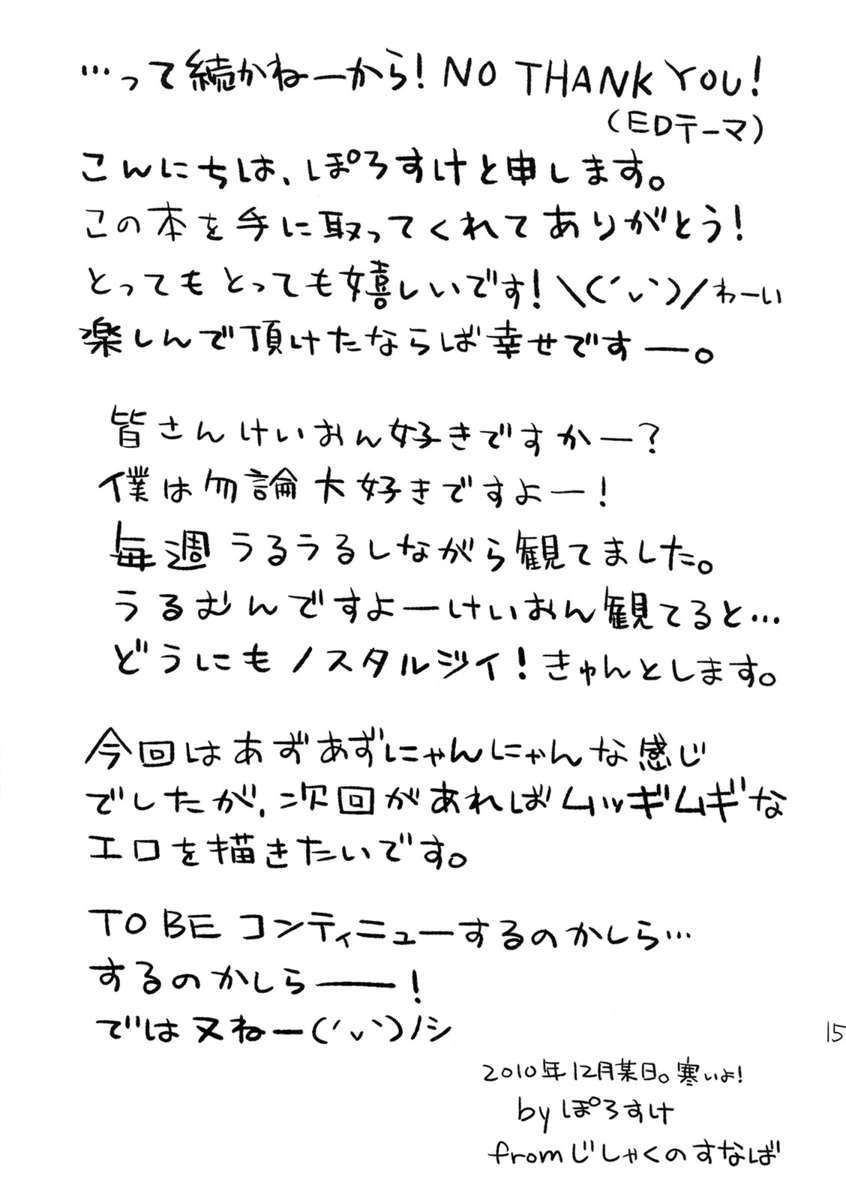 …って続かねーから! NO THANK YOU!
(EDテーマ)
こんにちは、ぽろすけと申します。
この本を手に取ってくれてありがとう!
とってもとっても嬉しいです! \(´ヽ`)/わーい
楽しんで頂けたならば幸せですー。
皆さんけいおん好きですかー?
僕は勿論大好きですよー!
毎週うるうるしながら観てました。
うるむんですよーけいおん観てると…
どうにもノスタルジイ! きゅんとします。
今回はあずあずにゃんにゃんな感じ
でしたが、次回があればムッギムギな
エロを描きたいです。
TO BE コンティニューするのかしら…
するのかしらー!
では又ねー(´ヽ`)ノシ
15
2010年12月某日。寒いよ!
by ぽろすけ
from じしゃくのすなば